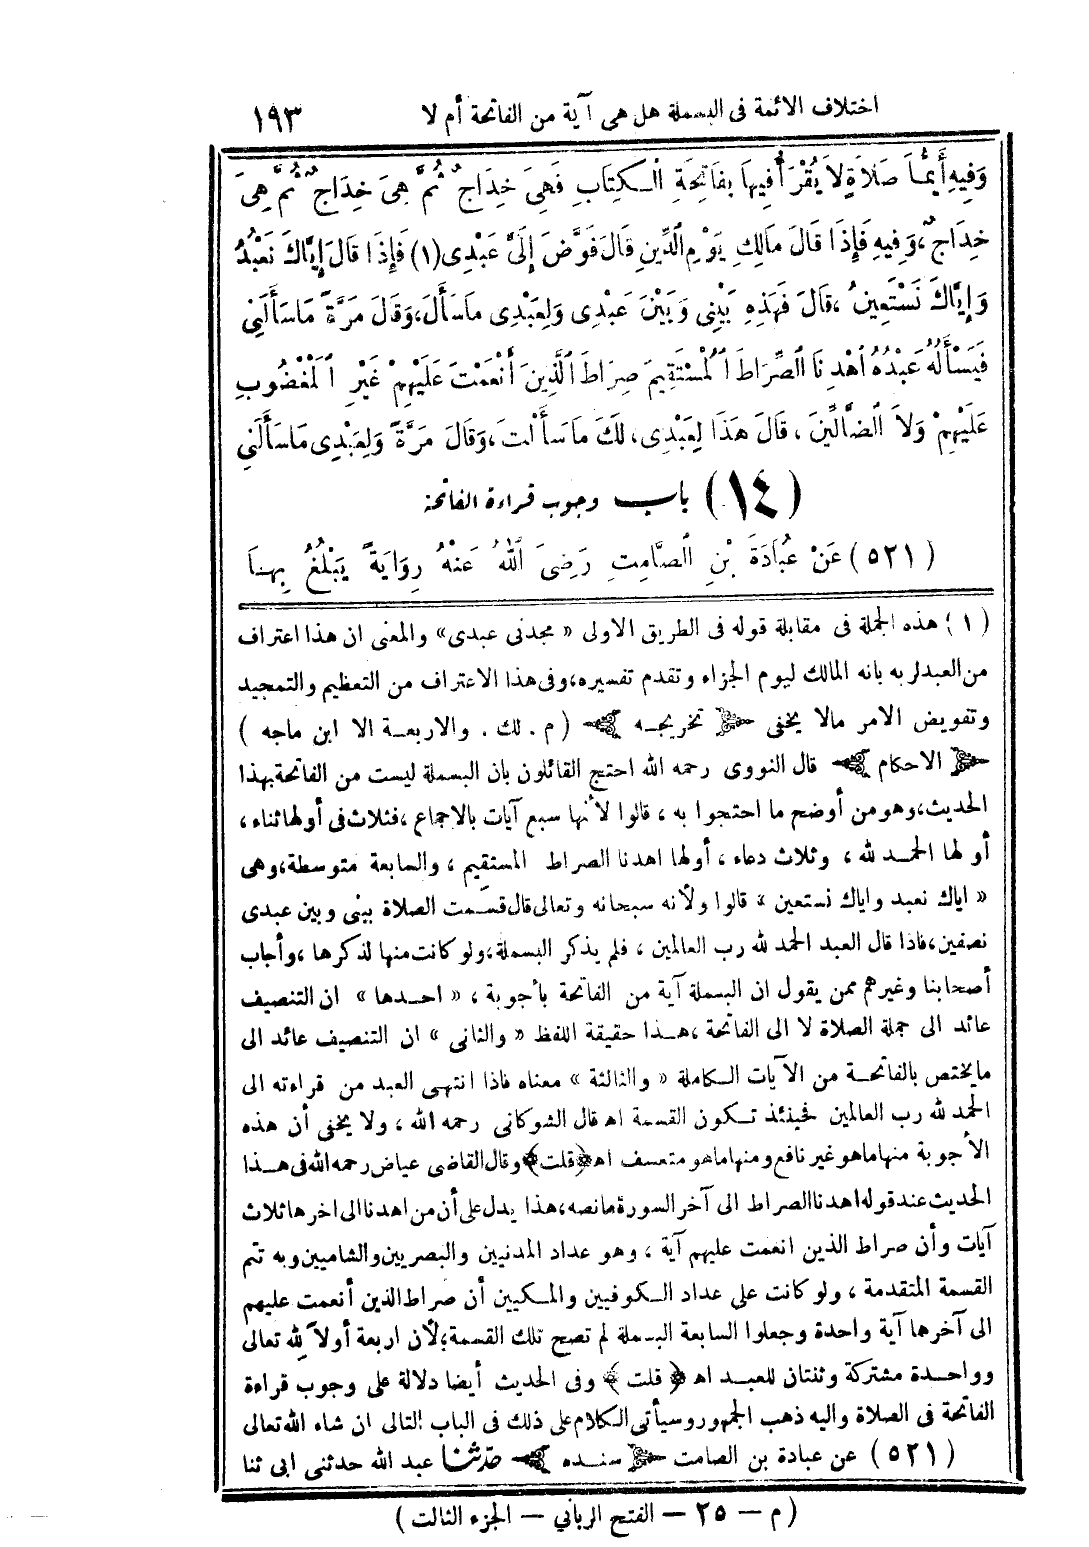 اختلاف الائمة فى البسملة هل هى آية من الفاتحة أم لا ١٩٣
وَفِيهِ أَيُّمَا صَلَاةٍ لَا يُقْرَأُ فِيهَا بِفَاتِحَةِ الْكِتَابِ فَهِىَ خِدَاجٌ ثُمَّ هِىَ خِدَاجٌ ثُمَّ هِىَ
خِدَاجٌ، وَفِيهِ فَإِذَا قَالَ مَالِكِ يَوْمِ الدِّينِ قَالَ فَوَّضَ إِلَىَّ عَبْدِى (١) فَإِذَا قَالَ إِيَّاكَ نَعْبُدُ
وَإِيَّاكَ نَسْتَعِينُ، قَالَ فَهَذِهِ بَيْنِى وَبَيْنَ عَبْدِى وَلِعَبْدِى مَا سَأَلَ، وَقَالَ مَرَّةً مَا سَأَلَنِي
فَيَسْأَلُهُ عَبْدُهُ اهْدِنَا الصِّرَاطَ الْمُسْتَقِيمَ صِرَاطَ الَّذِينَ أَنْعَمْتَ عَلَيْهِمْ غَيْرِ الْمَغْضُوبِ
عَلَيْهِمْ وَلَا الضَّالِّينَ، قَالَ هَذَا لِعَبْدِى، لَكَ مَا سَأَلْتَ، وَقَالَ مَرَّةً وَلِعَبْدِى مَا سَأَلَنِي
(١٤) باب وجوب قراءة الفاتحة
(٥٢١) عَنْ عُبَادَةَ بْنِ الصَّامِتِ رَضِىَ اللهُ عَنْهُ رِوَايَةً يَبْلُغُ بِهَا
(١) هذه الجملة فى مقابلة قوله فى الطريق الاولى « مجدنى عبدى» والمعنى ان هذا اعتراف
من العبد لربه بانه المالك ليوم الجزاء وتقدم تفسيره، وفى هذا الاعتراف من التعظيم والتمجيد
وتفويض الامر مالا يخفى ﴿ تخريجه ﴾ (م . لك . والاربعة الا ابن ماجه)
﴿ الاحكام ﴾ قال النووى رحمه الله احتج القائلون بان البسملة ليست من الفاتحة بهذا
الحديث، وهو من أوضح ما احتجوا به، قالوا لأنها سبع آيات بالاجماع، فثلاث فى أولها ثناء،
أولها الحمد لله، وثلاث دعاء، أولها اهدنا الصراط المستقيم، والسابعة متوسطة، وهى
« اياك نعبد واياك نستعين » قالوا ولأنه سبحانه وتعالى قال قسمت الصلاة بينى وبين عبدى
نصفين، فاذا قال العبد الحمد لله رب العالمين، فلم يذكر البسملة، ولو كانت منها لذكرها، وأجاب
أصحابنا وغيرهم ممن يقول ان البسملة آية من الفاتحة بأجوبة، « احدها » ان التنصيف
عائد الى جملة الصلاة لا الى الفاتحة، هذا حقيقة اللفظ « والثانى » ان التنصيف عائد الى
ما يختص بالفاتحة من الآيات الكاملة « والثالثة » معناه فاذا انتهى العبد من قراءته الى
الحمد لله رب العالمين فحينئذ تكون القسمة اه قال الشوكانى رحمه الله، ولا يخفى أن هذه
الأجوبة منها ما هو غير نافع ومنها ما هو متعسف اه ﴿قلت﴾ وقال القاضى عياض رحمه الله فى هذا
الحديث عند قوله اهدنا الصراط الى آخر السورة ما نصه، هذا يدل على أن من اهدنا الى اخرها ثلاث
آيات وأن صراط الذين انعمت عليهم آية، وهو عداد المدنيين والبصريين والشاميين وبه تتم
القسمة المتقدمة، ولو كانت على عداد الكوفيين والمكيين أن صراط الذين أنعمت عليهم
الى آخرها آية واحدة وجعلوا السابعة البسملة لم تصح تلك القسمة؛ لأن اربعة أولاً لله تعالى
وواحدة مشتركة وثنتان للعبد اه ﴿ قلت ﴾ وفى الحديث أيضا دلالة على وجوب قراءة
الفاتحة فى الصلاة واليه ذهب الجمهور وسيأتى الكلام على ذلك فى الباب التالى ان شاء الله تعالى
(٥٢١) عن عبادة بن الصامت ﴿ سنده ﴾ حدثنا عبد الله حدثنى ابى ثنا
(م — ٢٥ — الفتح الرباني — الجزء الثالث)